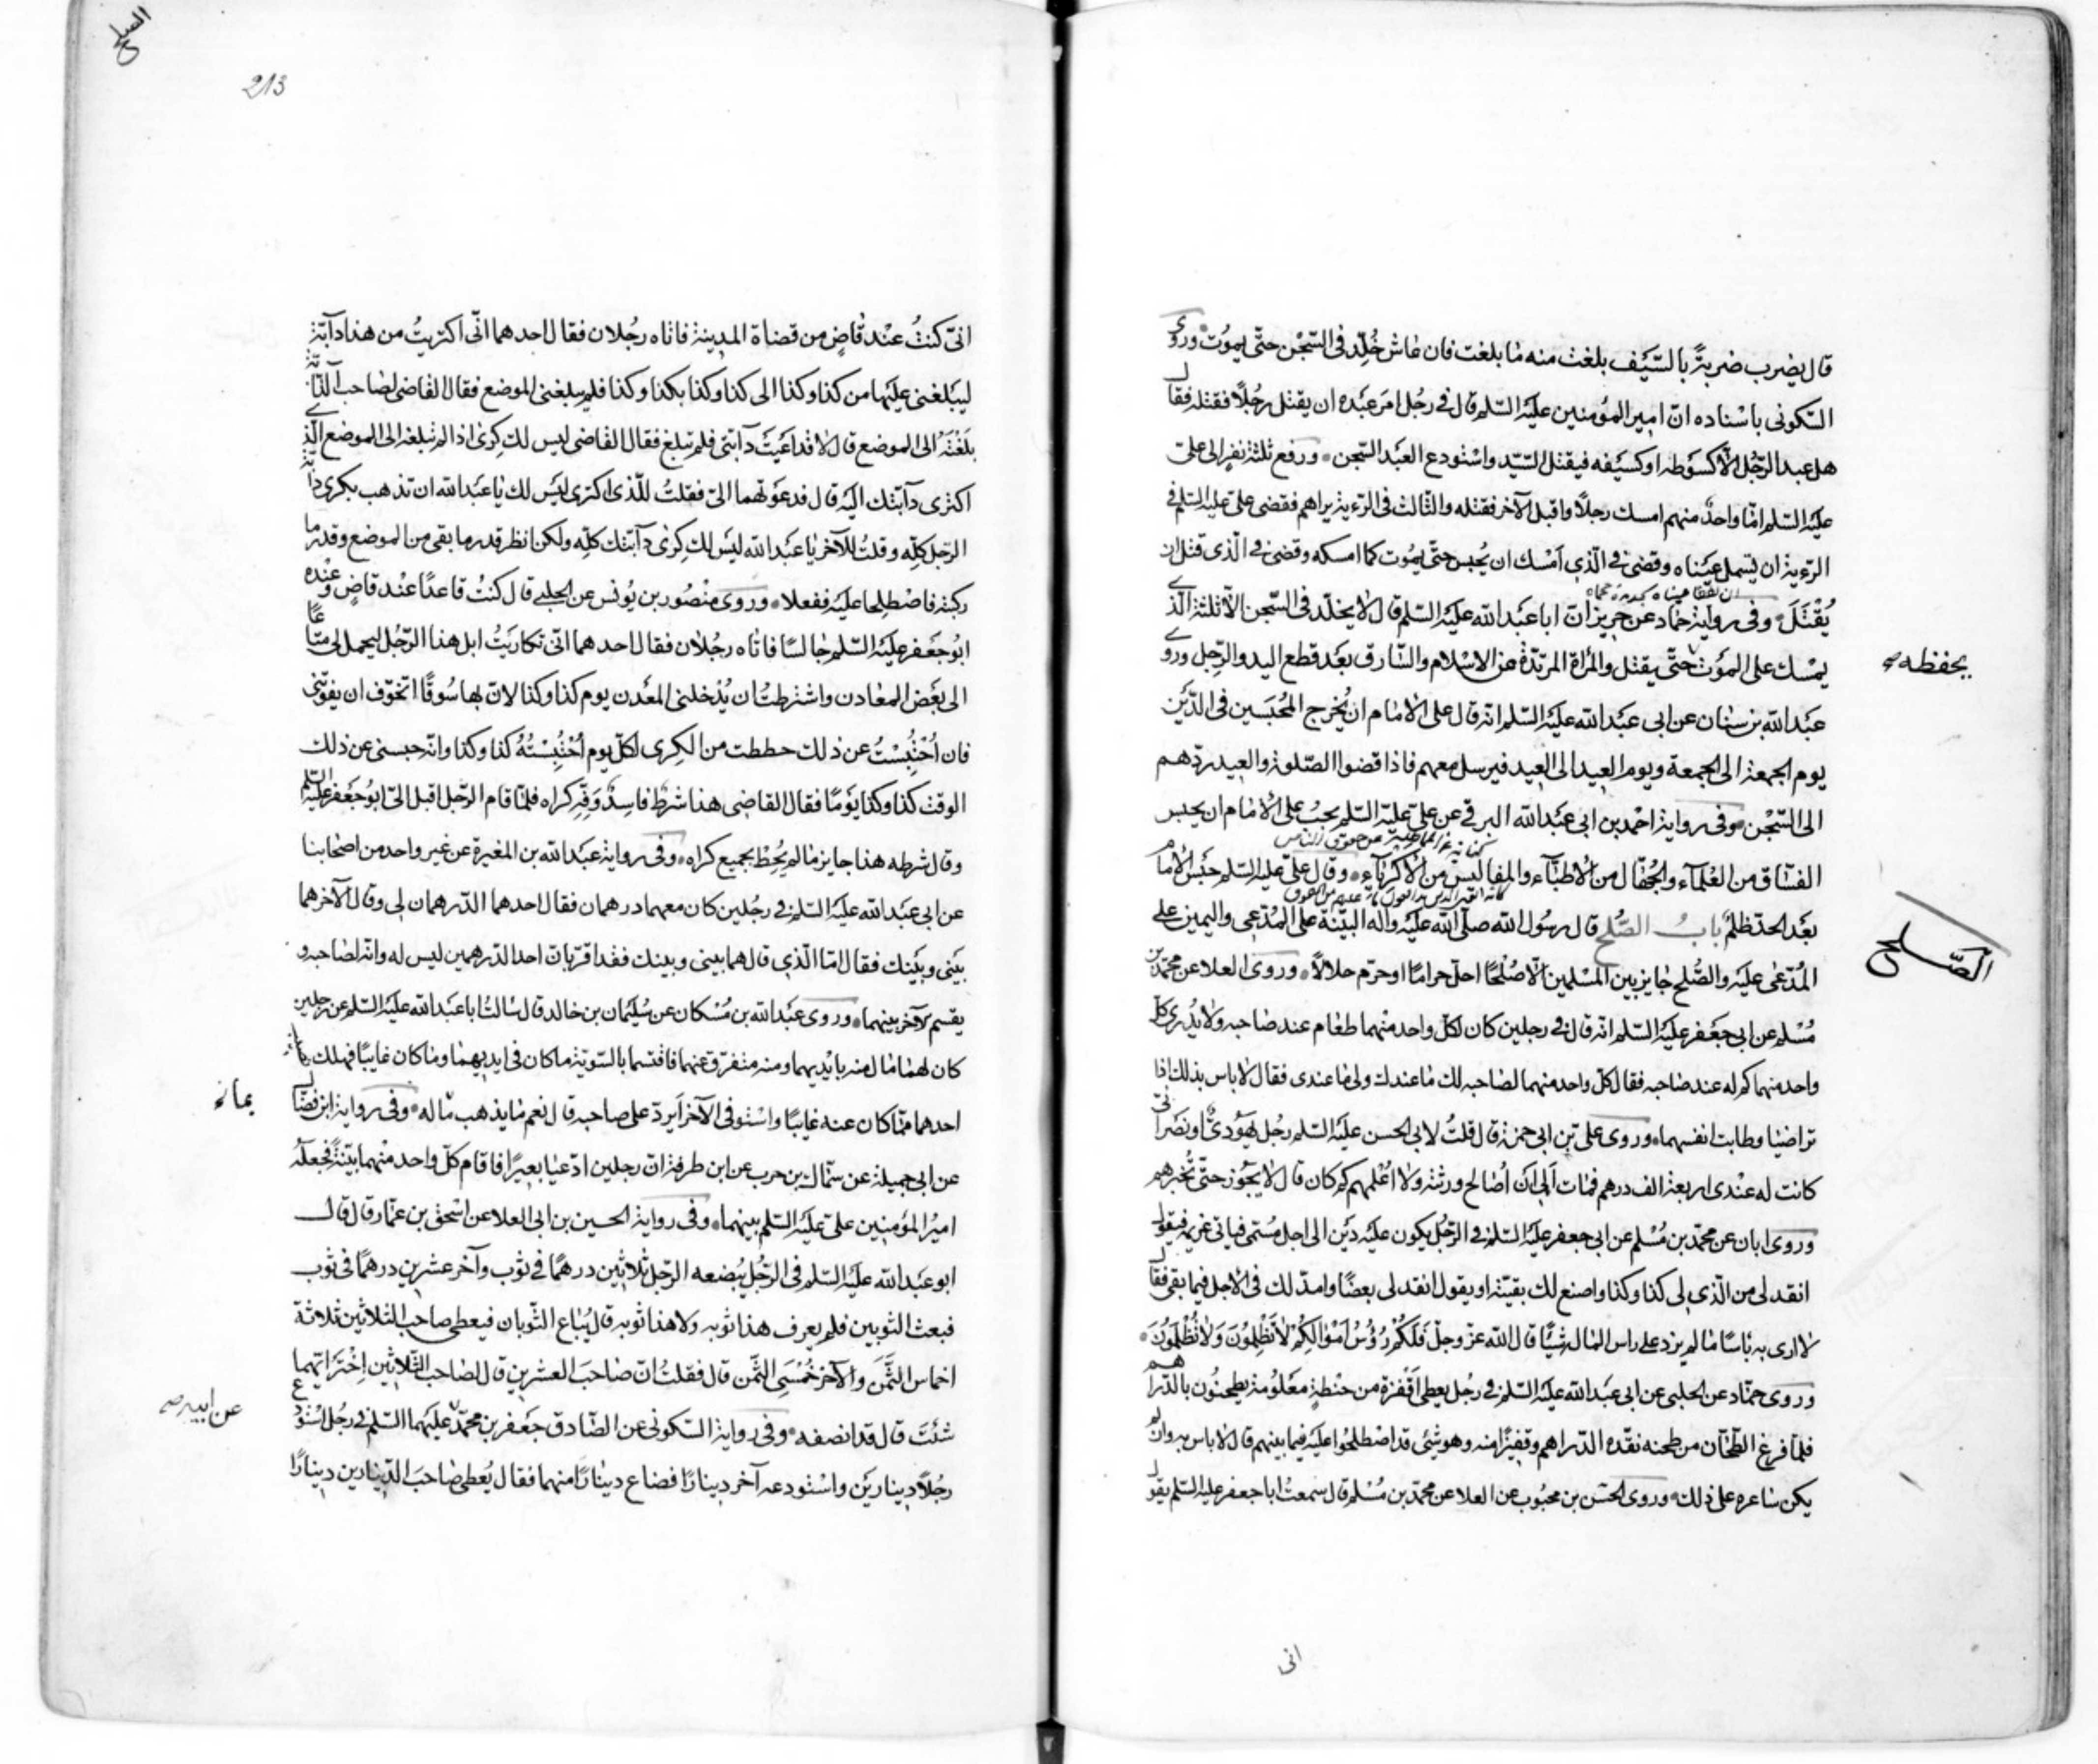 قال يضرب ضربةً بالسّيف بلغت منه ما بلغت فان عاش خُلّد فى السّجن حتّى يموت وروى
السّكونى باسناده انّ امير المؤمنين عليه السّلم قال فى رجل امر عبده ان يقتل رجُلًا فقتله فقال
هل عبد الرّجُل الّا كسَوطه او كسَيفه فيقتل السّيّد واستودع العبد السّجن ورفع ثلثة نفر الى علىّ
عليه السّلم امّا واحدٌ منهم امسك رجلًا واقبل الآخر فقتله والثّالث فى الرّءية يراهم فقضى علىّ عليه السّلم فى
الرّءية ان يُسمل عيناه وقضى فى الّذى اَمْسك ان يُحبس حتّى يموت كما امسكه وقضى فى الّذى قتل ان
يُقْتَلَ وفى رواية حمّاد عن حريز انّ ابا عبد الله عليه السّلم قال لا يخلّد فى السّجن الّا ثلثة الّذى
يمْسك على الموْت حتّى يقتل والمرأة المرتدّة عن الاسلام والسّارق بعد قطع اليد والرّجل وروى
يحفظه
عبد الله بن سنان عن ابى عبد الله عليه السّلم انّه قال على الامام ان يُخرج المُحبَسين فى الدّيْن
يوم الجمعة الى الجمعة ويوم العيد الى العيد فيرسل معهم فاذا قضوا الصّلوة والعيد ردّهم
الى السّجن وفى رواية احْمد بن ابى عبد الله البرقى عن علىّ عليه السّلم يجبُ على الامام ان يحبس
الفسّاق من العُلمآء والجُهّال من الاطبّآء والمفاليس من الاكرياء وقال علىّ عليه السّلم حبْس الامام
بعد الحدّ ظلمٌ بابُ الصُّلح قال رسُول الله صلّى الله عليه وآله البيّنة على المُدّعِى واليمين على
الصّلح
المُدّعٰى عليه والصُّلح جايز بين المسْلمين الّا صُلحًا احلّ حرامًا او حرّم حلالًا وروى العلا عن محمّد بن
مُسْلم عن ابى جعفر عليه السّلم انّه قال فى رجلين كان لكلّ واحد منهما طعام عند صاحبه ولا يدْرى كلّ
واحد منهما كم له عند صاحبه فقال كلّ واحد منهما لصاحبه لك ما عندك ولى ما عندى فقال لا باس بذلك اذا
تراضيا وطابت انفسهما وروى علىّ بن ابى حمزة قال قلتُ لابى الحسن عليه السّلم رجُل يهُودىٌّ او نصرانىّ
كانت له عندى اربعة الف درهم فمات اَلِى اَن اُصالح ورثته ولا اُعْلمهم كم كان قال لا يجُوز حتّى تُخبرهم
وروى ابان عن محمّد بن مُسْلم عن ابى جعفر عليه السّلم فى الرّجُل يكون عليه ديْن الى اجل مُسمّى فياتى غريمه فيقول
انقد لى من الّذى لى كذا وكذا واصنع لك بقيّته او يقول انقد لى بعضًا وامدّ لك فى الاجل فيما بقى فقال
لا ارى به باسًا ما لم يزد على راس المال شيئًا قال الله عزّ وجلّ فَلَكُمْ رُؤُسُ اَمْوالِكُمْ لاتَظْلِمُونَ وَلاتُظْلَمُونَ
وروى حمّاد عن الحلبى عن ابى عبد الله عليه السّلم فى رجُل يعطى اَقْفزة من حنطةٍ معْلُومة يطحنُون بالدّراهم
فلمّا فرغ الطّحّان من طحنه نقّده الدّراهم وقفيزًا منه وهو شئ قد اصْطلحُوا عليه فيما بينهم قال لا باس به وان لم
يكن ساعره على ذلك وروى الحسن بن محبُوب عن العلا عن محمّد بن مُسْلم قال سمعتُ ابا جعفر عليه السّلم يقول
انى
الصلح
213
انّى كنتُ عنْد قاضٍ من قضاة المدينة فاتاه رجُلان فقال احدهما انّى اكتريتُ من هذا دآبّة
ليبلّغنى عليها من كذا وكذا الى كذا وكذا بكذا وكذا فلم يبلغنى الموضع فقال القاضى لصاحب الدّآبّة
بلّغْتَه الى الموضع قال لا قد اعيَتْ دآبّتى فلم تبلغ فقال القاضى ليس لك كِرى اذا لم تبلغه الى الموضع الّذى
اكترى دآبّتك اليه قال فدعوتهما الىّ فقلتُ للّذى اكترى ليْس لك يا عبد الله ان تذهب بكرى دابّة
الرّجل كلّه وقلتُ للآخر يا عبد الله ليس لك كِرى دآبّتك كلّه ولكن انظر قدر ما بقى من الموضع وقدر ما
ركبته فاصْطلِحا عليه ففعلا وروى منْصُور بن يُونس عن الحلبى قال كنتُ قاعدًا عنْد قاضٍ وعنْده
ابُو جعفر عليه السّلم جالسًا فاتاه رجُلان فقال احدهما انّى تكاريْتُ ابل هذا الرّجُل ليحمل لى متاعًا
الى بعْض المعادن واشترطتُ ان يُدْخلنى المعْدن يوم كذا وكذا لانّ بها سُوقًا اتخوّف ان يفوتنى
فان اُحْتُبِسْتُ عن ذلك حططت من الكِرى لكلّ يوم اُحْتُبِسْتُهُ كذا وكذا وانّه حبسنى عن ذلك
الوقت كذا وكذا يوْمًا فقال القاضى هذا شرطٌ فاسِدٌ وَفِّهِ كراه فلمّا قام الرّجل اقبل الىّ ابُو جعفر عليه السّلم
وقال شرطه هذا جايز ما لم يُحطّ بجميع كراه وفى رواية عبد الله بن المغيرة عن غير واحد من اصحابنا
عن ابى عبد الله عليه السّلم فى رجُلين كان معهما درهمان فقال احدهما الدّرهمان لى وقال الآخر هما
بينى وبيْنك فقال امّا الّذى قال هما بينى وبينك فقد اقرّ بانّ احد الدّرهمين ليس له وانّه لصاحبه و
يقسم الآخر بينهما وروى عبد الله بن مُسْكان عن سُليْمان بن خالد قال سالتُ ابا عبد الله عليه السّلم عن رجلين
كان لهما مال منه بايْديهما ومنه متفرّق عنهما فاقتسما بالسّويّة ما كان فى ايديهما وما كان غايبًا فهلك
احدهما ممّا كان عنه غايبًا واسْتوفى الآخر اَيردّ على صاحبه قال نعم ما يذهب ماله وفى رواية ابن فضّال
بماله
عن ابى جميلة عن سمّاك بن حرب عن ابن طرفة انّ رجلين ادّعيا بعِيرًا فاقام كلّ واحد منْهما بيّنةً فجعله
اميرُ المؤمنين علىّ عليه السّلم بينهما وفى رواية الحسين بن ابى العلا عن اسْحق بن عمّار قال قال
ابو عبد الله عليه السّلم فى الرّجُل يُبْضعه الرّجل ثلاثين درهمًا فى ثوْب وآخر عشرين درهمًا فى ثوْب
فبعث الثّوبين فلم يعرف هذا ثوبه ولا هذا ثوبه قال يُباع الثّوبان فيعطى صاحب الثلاثين ثلاثة
اخماس الثّمَن والآخَر خُمْسَىِ الثّمن قال فقلتُ انّ صاحبَ العشرين قال لصاحب الثّلاثين اِخْتَر ايّهما
شئتَ قال قد انصفه وفى رواية السّكونى عن الصّادق جعفر بن محمّد عليهما السّلم فى رجُل اسْتودع
عن ابيه
رجُلًا دينارين واسْتودعه آخر دينارًا فضاع دينارًا منهما فقال يُعطى صاحبَ الدّينارين دينارًا